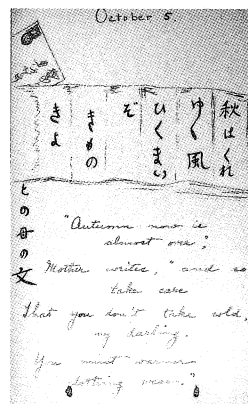 October 5.
秋はくれ
ゆく風
ひくまい
ぞ
きもの
きよ
との母の文
"Autumn now is
almost over",
Mother writes, "and so
take care
That you don't take cold,
my darling.
You must warmer
clothing wear."